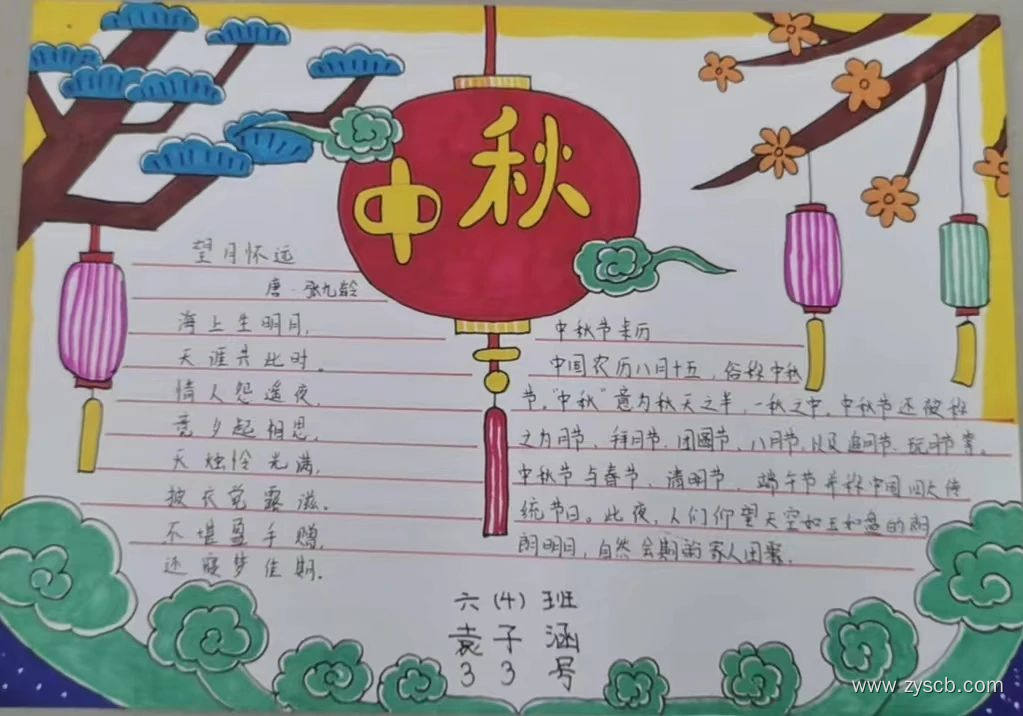 中秋
望月怀远
唐·张九龄
海上生明月,
天涯共此时。
情人怨遥夜,
竟夕起相思,
天烛怜光满,
披衣觉露滋。
不堪盈手赠,
还寝梦佳期.
中秋节来历
中国农历八月十五,俗称中秋
节。"中秋"意为秋天之半,一秋之中。中秋节还被称
之为月节、拜月节、团圆节、八月节,以及追月节、玩月节等。
中秋节与春节、清明节、端午节并称中国四大传
统节日。此夜,人们仰望天空如玉如盘的朗
朗明月,自然会期盼家人团聚.
六(4)班
袁子涵
33号
www.zyscb.com